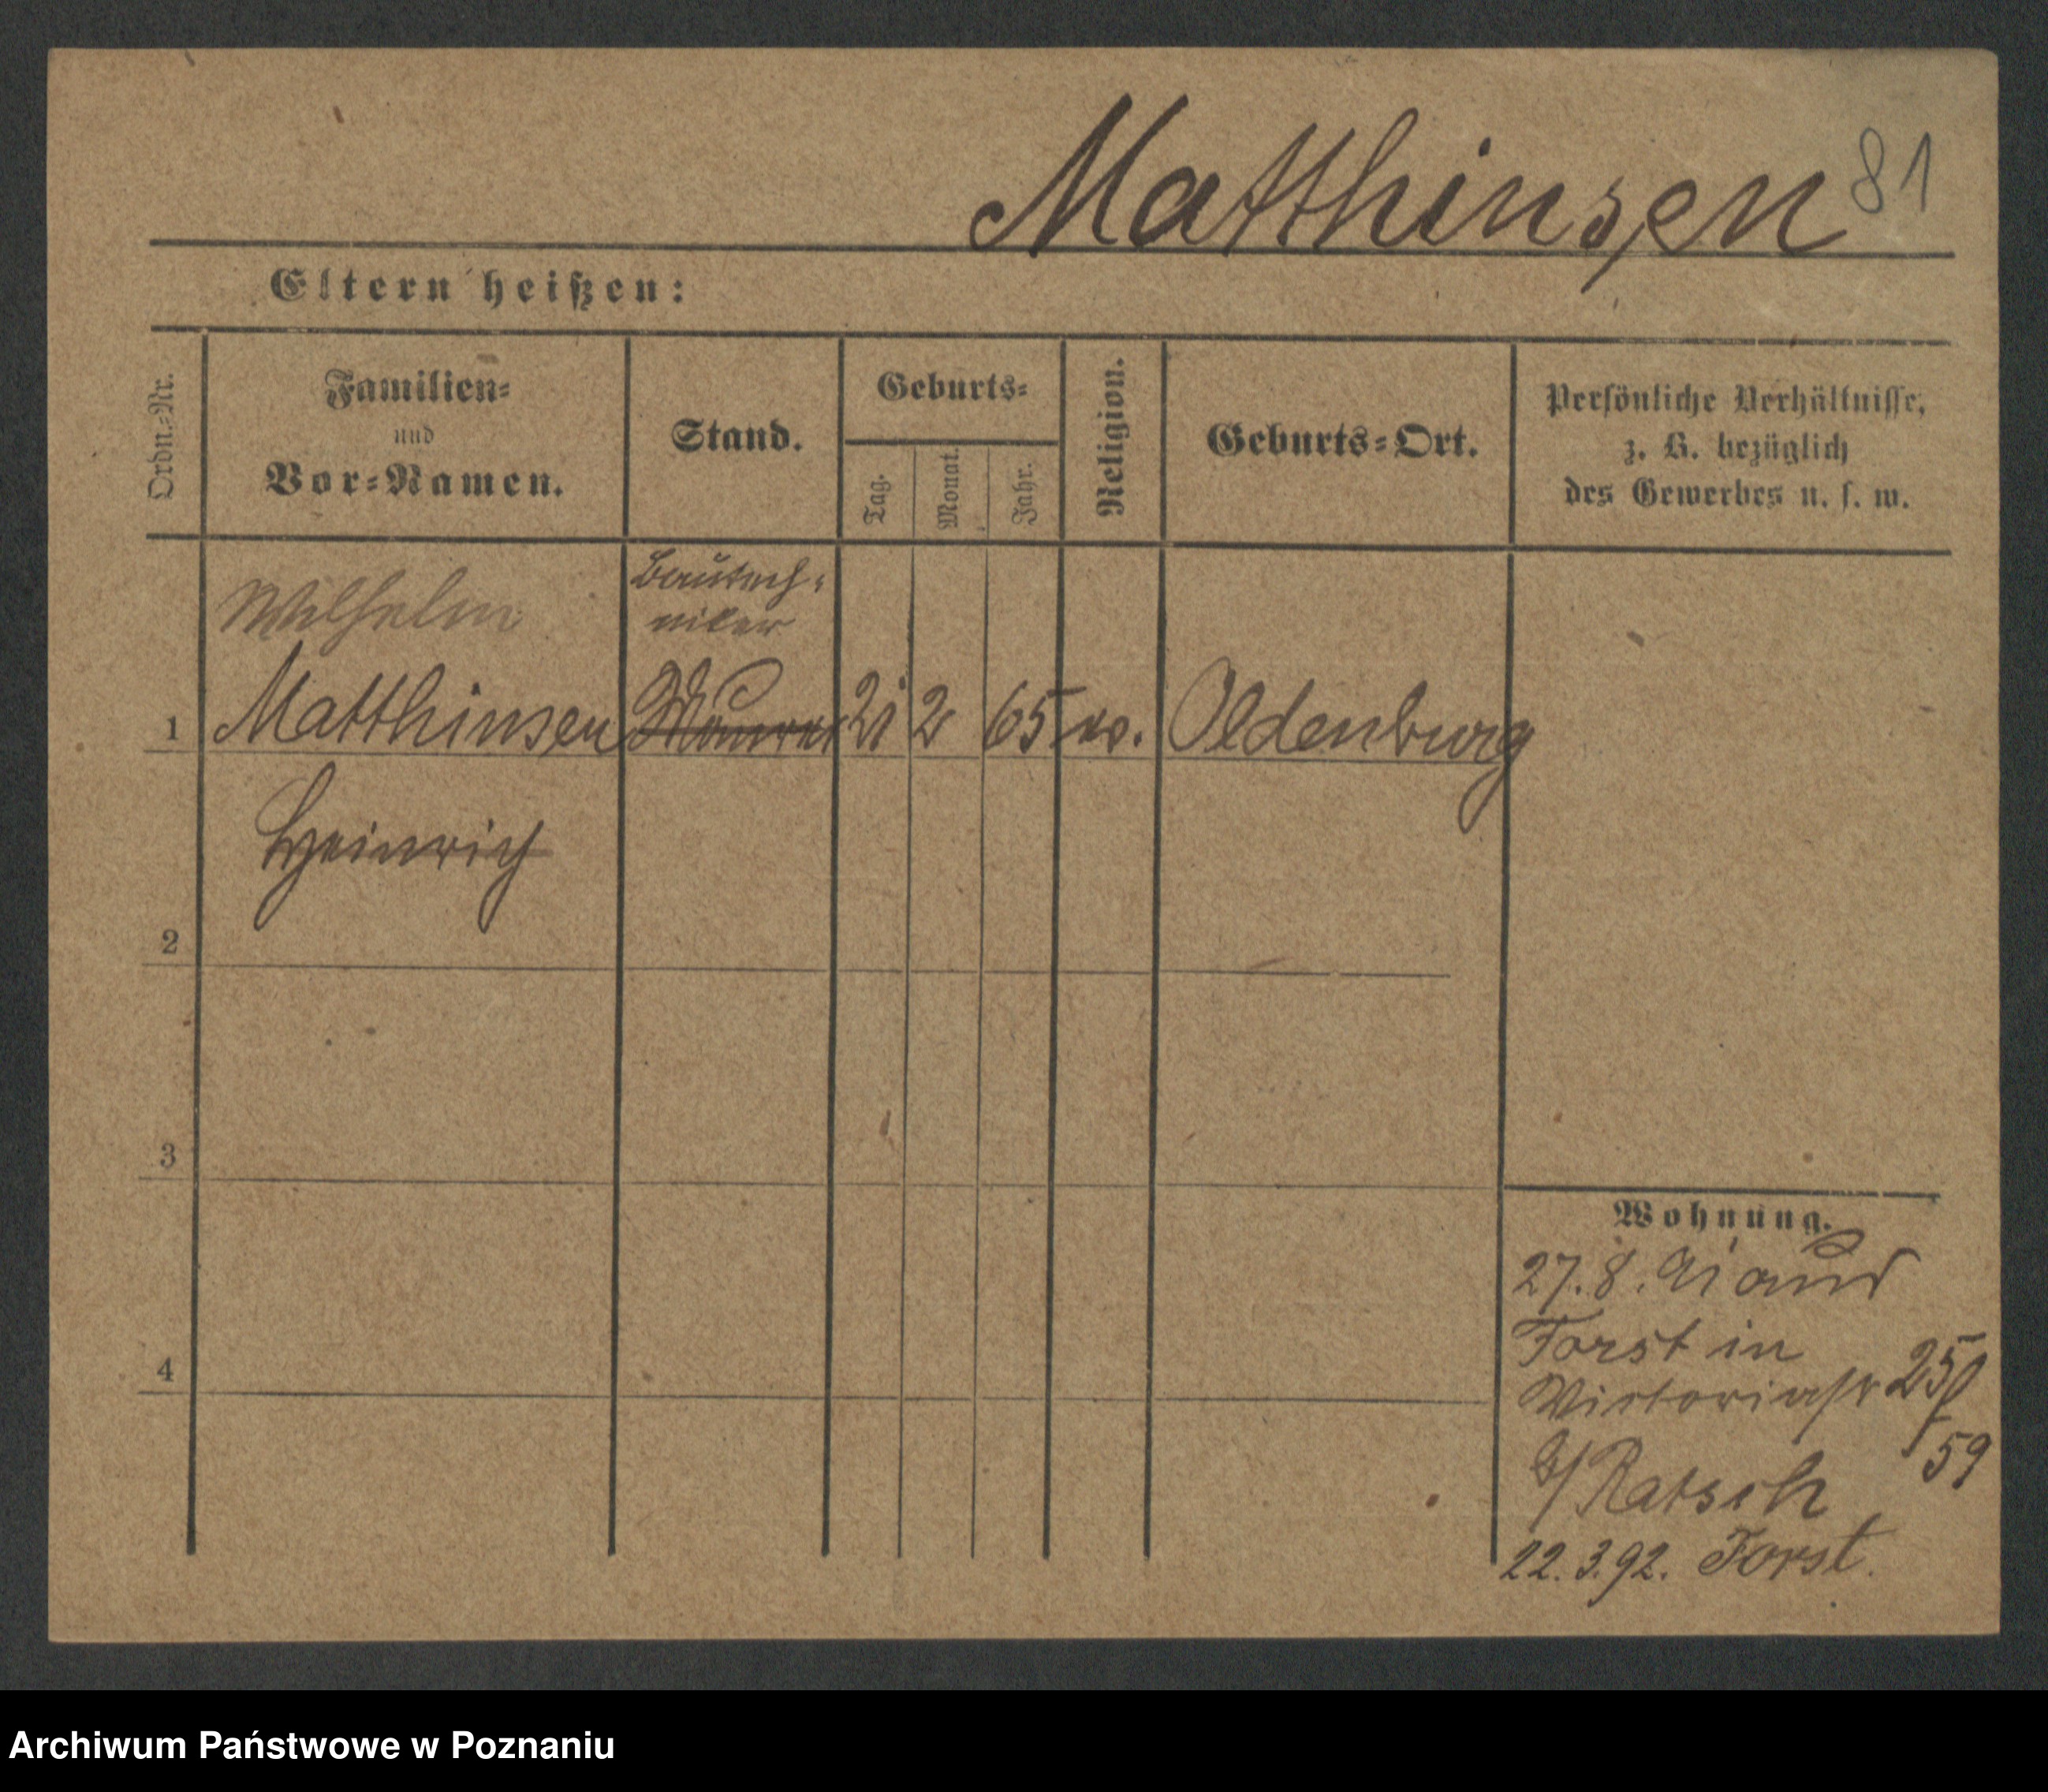 Matthinsen 81
Eltern heißen:
Ordn.-Nr.
Familien-
und
Vor-Namen.
Stand.
Geburts-
Tag.
Monat.
Jahr.
Religion.
Geburts-Ort.
Persönliche Verhältnisse,
z. B. bezüglich
des Gewerbes u. s. w.
Wilhelm
Bautech-
niker
1 Matthinsen Maurer 21 2 65 ev. Oldenburg
Heinrich
2
3
4
Wohnung.
27. 8. 91 aus
Forst in
Victoriastr 25
59
b/ Ratsch
22. 3. 92. Forst.
Archiwum Państwowe w Poznaniu